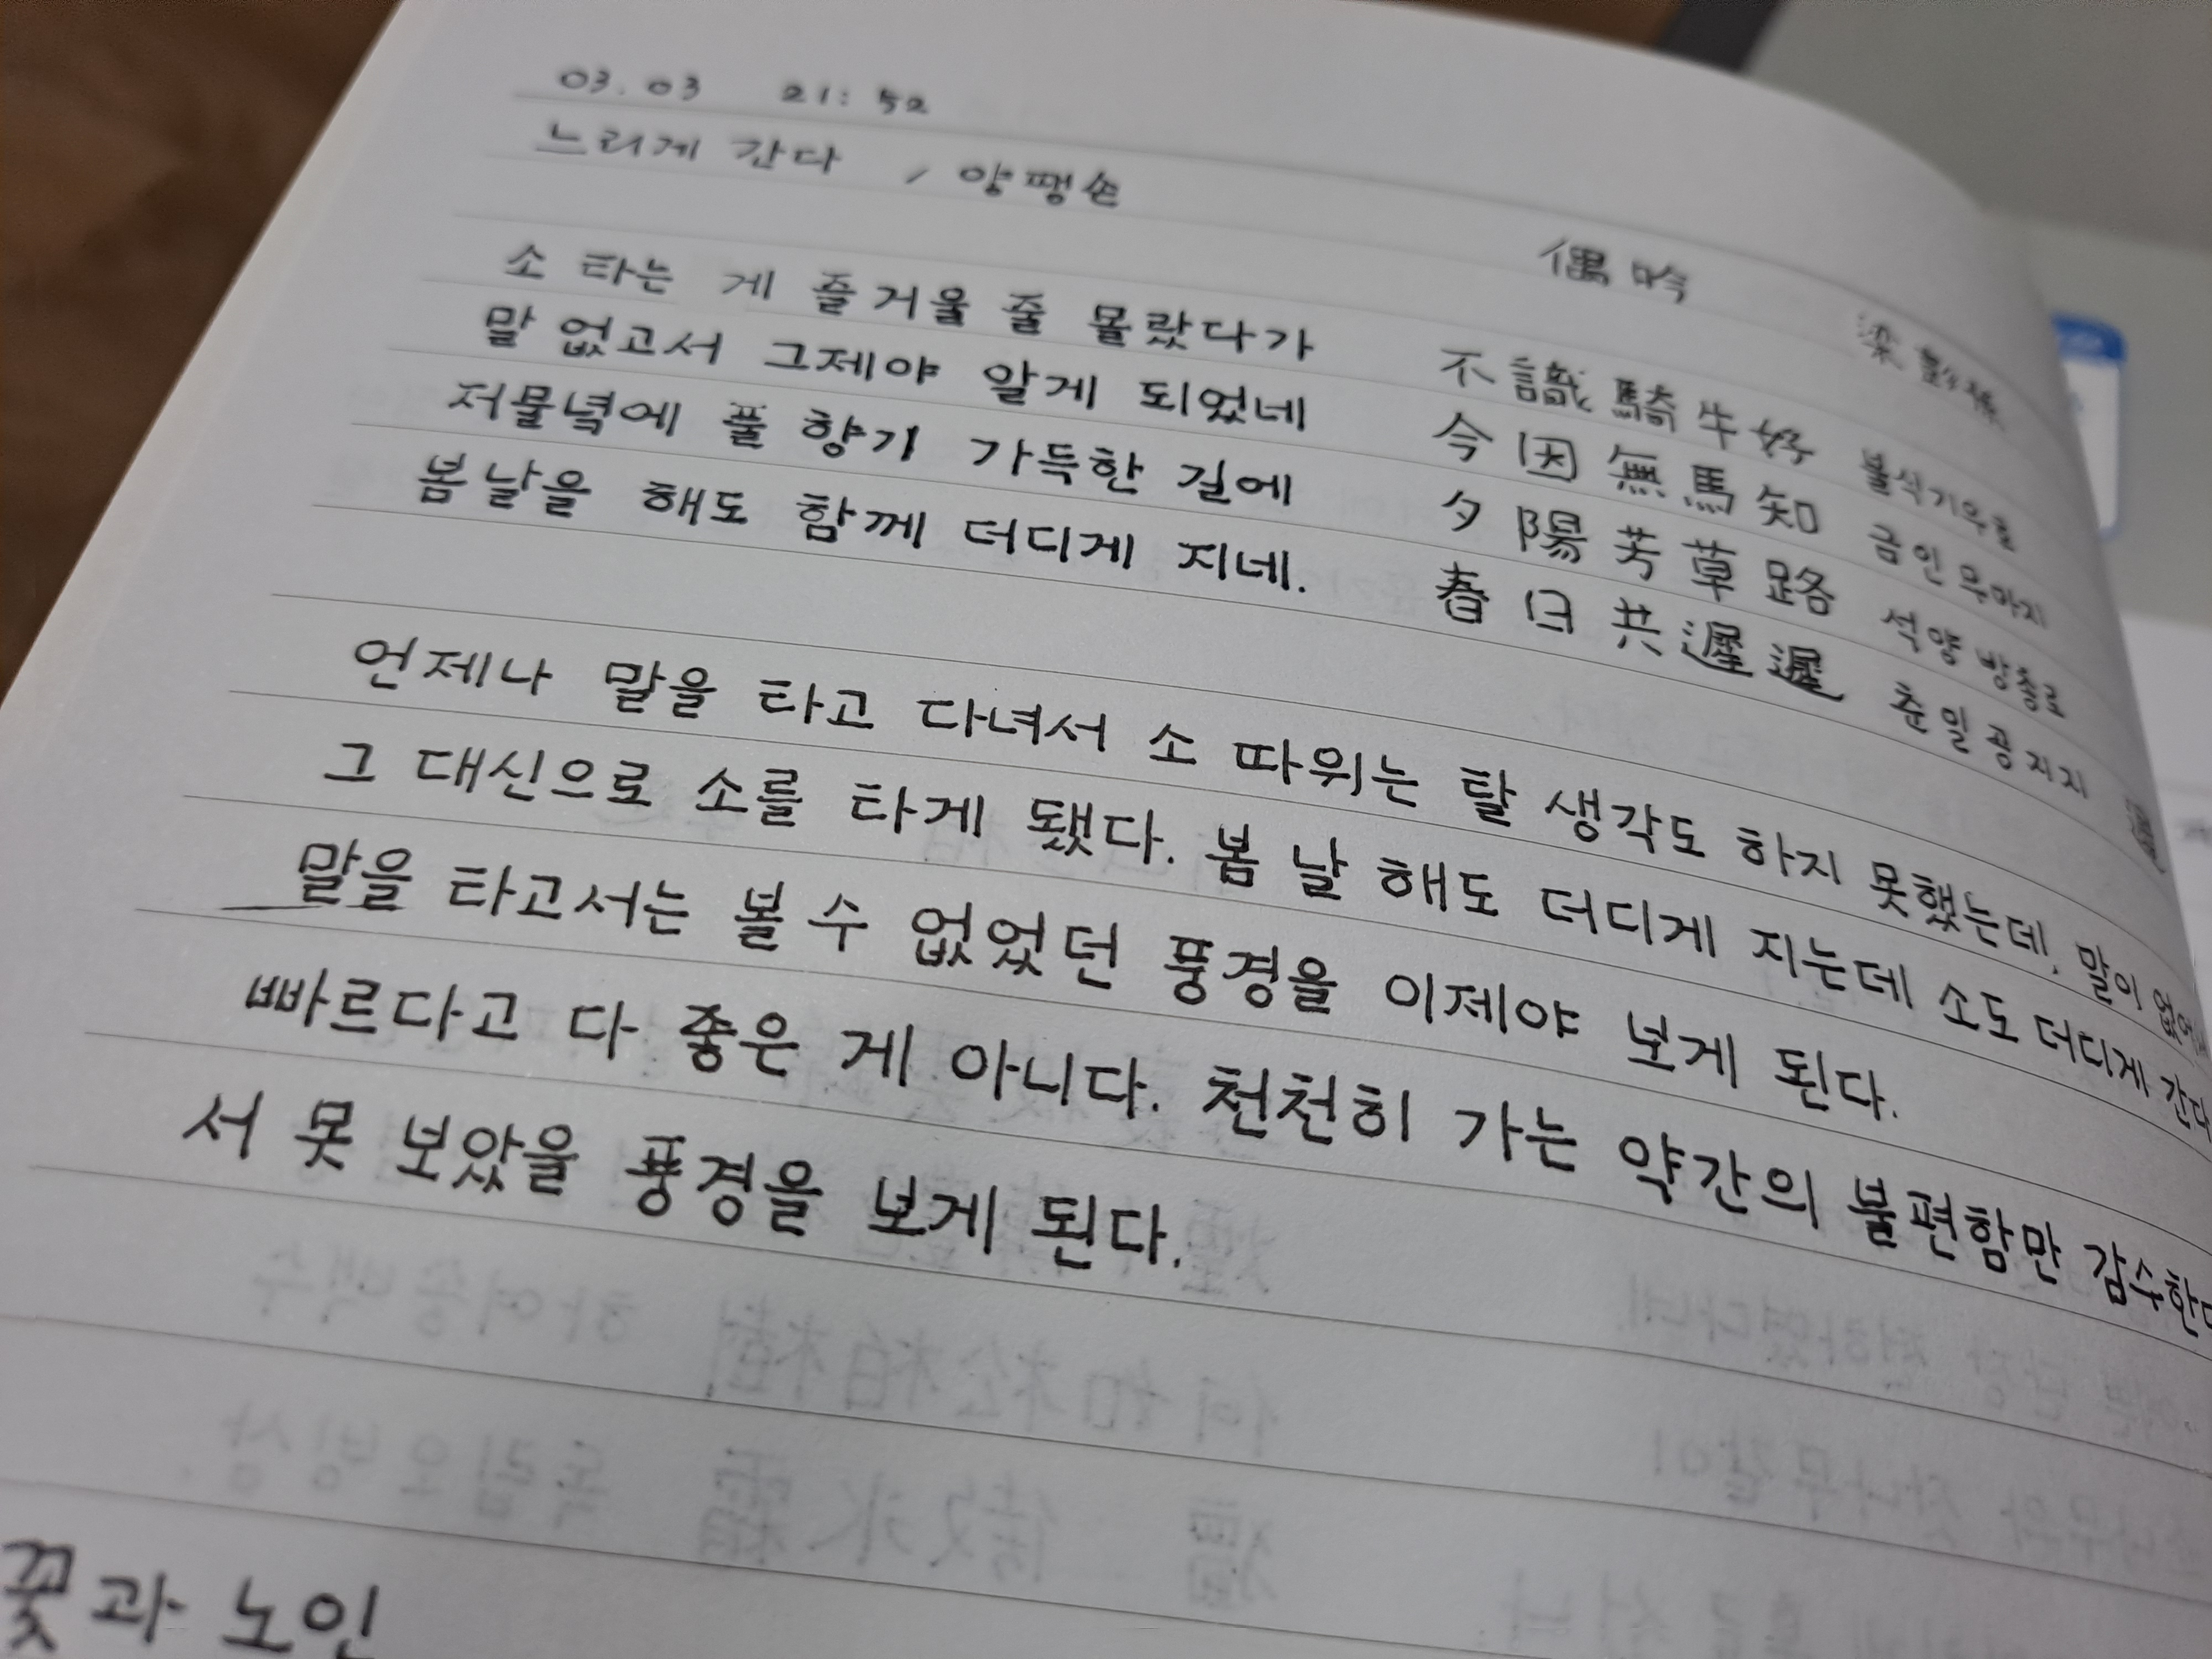 03.03 21:52
느리게 간다 / 양팽손
偶吟
梁
소 타는 게 즐거울 줄 몰랐다가 不識騎牛好 불식기우호
말 없고서 그제야 알게 되었네 今因無馬知 금인무마지
저물녘에 풀 향기 가득한 길에 夕陽芳草路 석양방초로
봄날을 해도 함께 더디게 지네. 春日共遲遲 춘일공지지
언제나 말을 타고 다녀서 소 따위는 탈 생각도 하지 못했는데, 말이
그 대신으로 소를 타게 됐다. 봄 날 해도 더디게 지는데 소도 더디게 간다
말을 타고서는 볼 수 없었던 풍경을 이제야 보게 된다.
빠르다고 다 좋은 게 아니다. 천천히 가는 약간의 불편함만
서 못 보았을 풍경을 보게 된다.
꽃과 노인